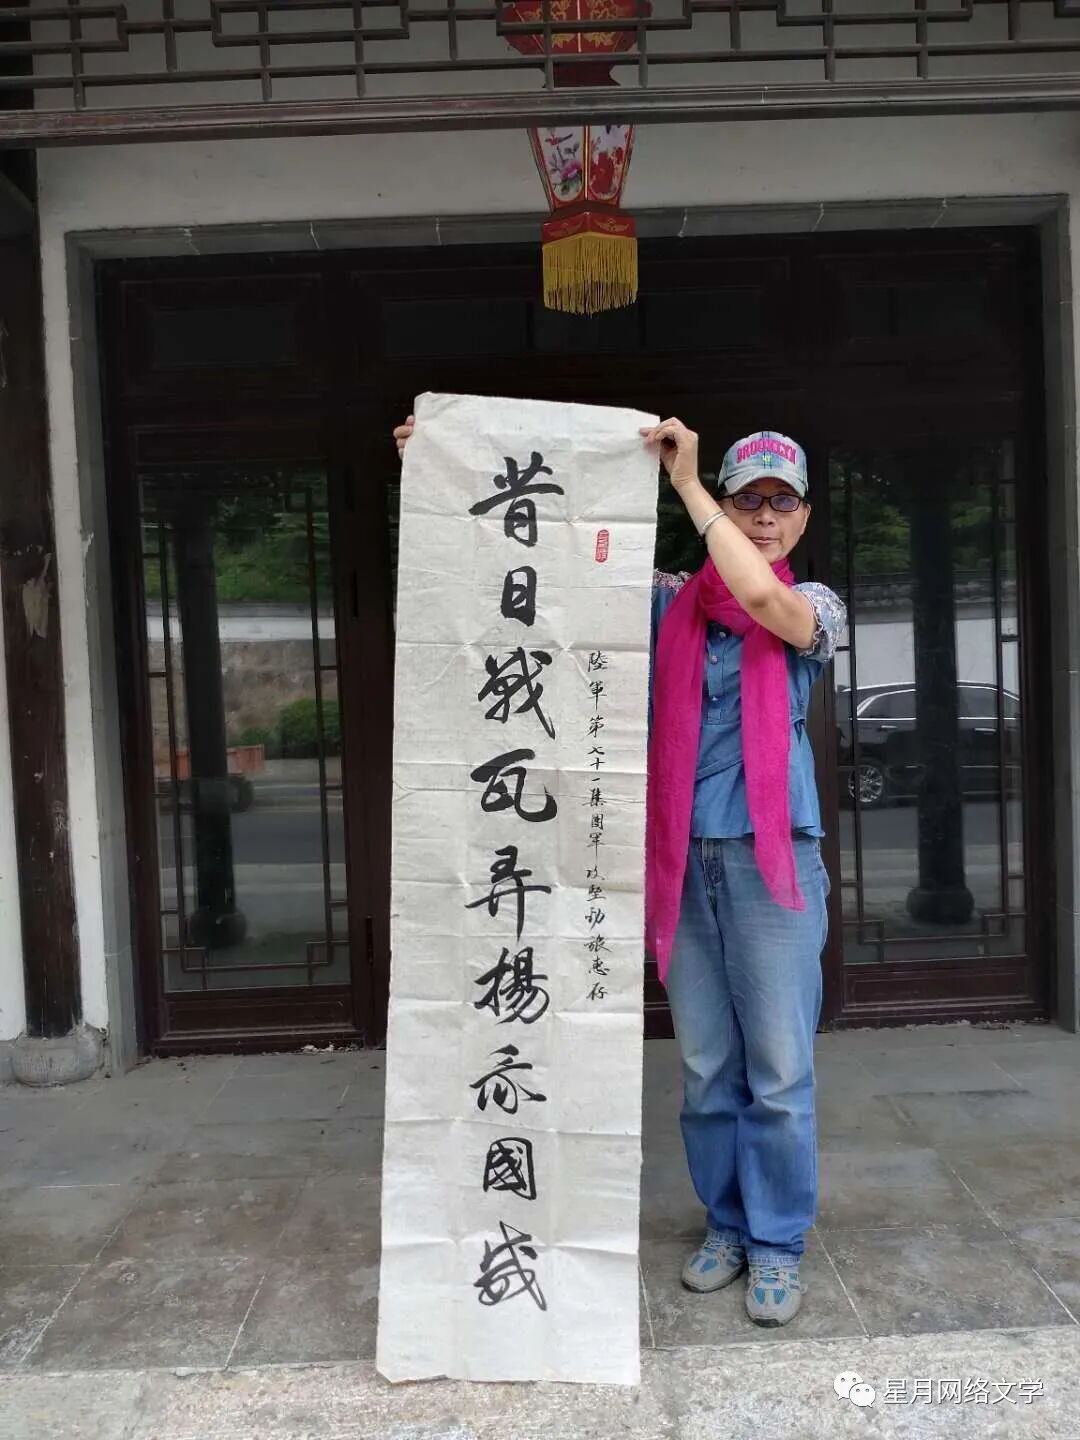 BROOKLYN
昔日戰瓦弄揚我國威
陸軍第七十一集團軍攻堅勁旅惠存
星月网络文学